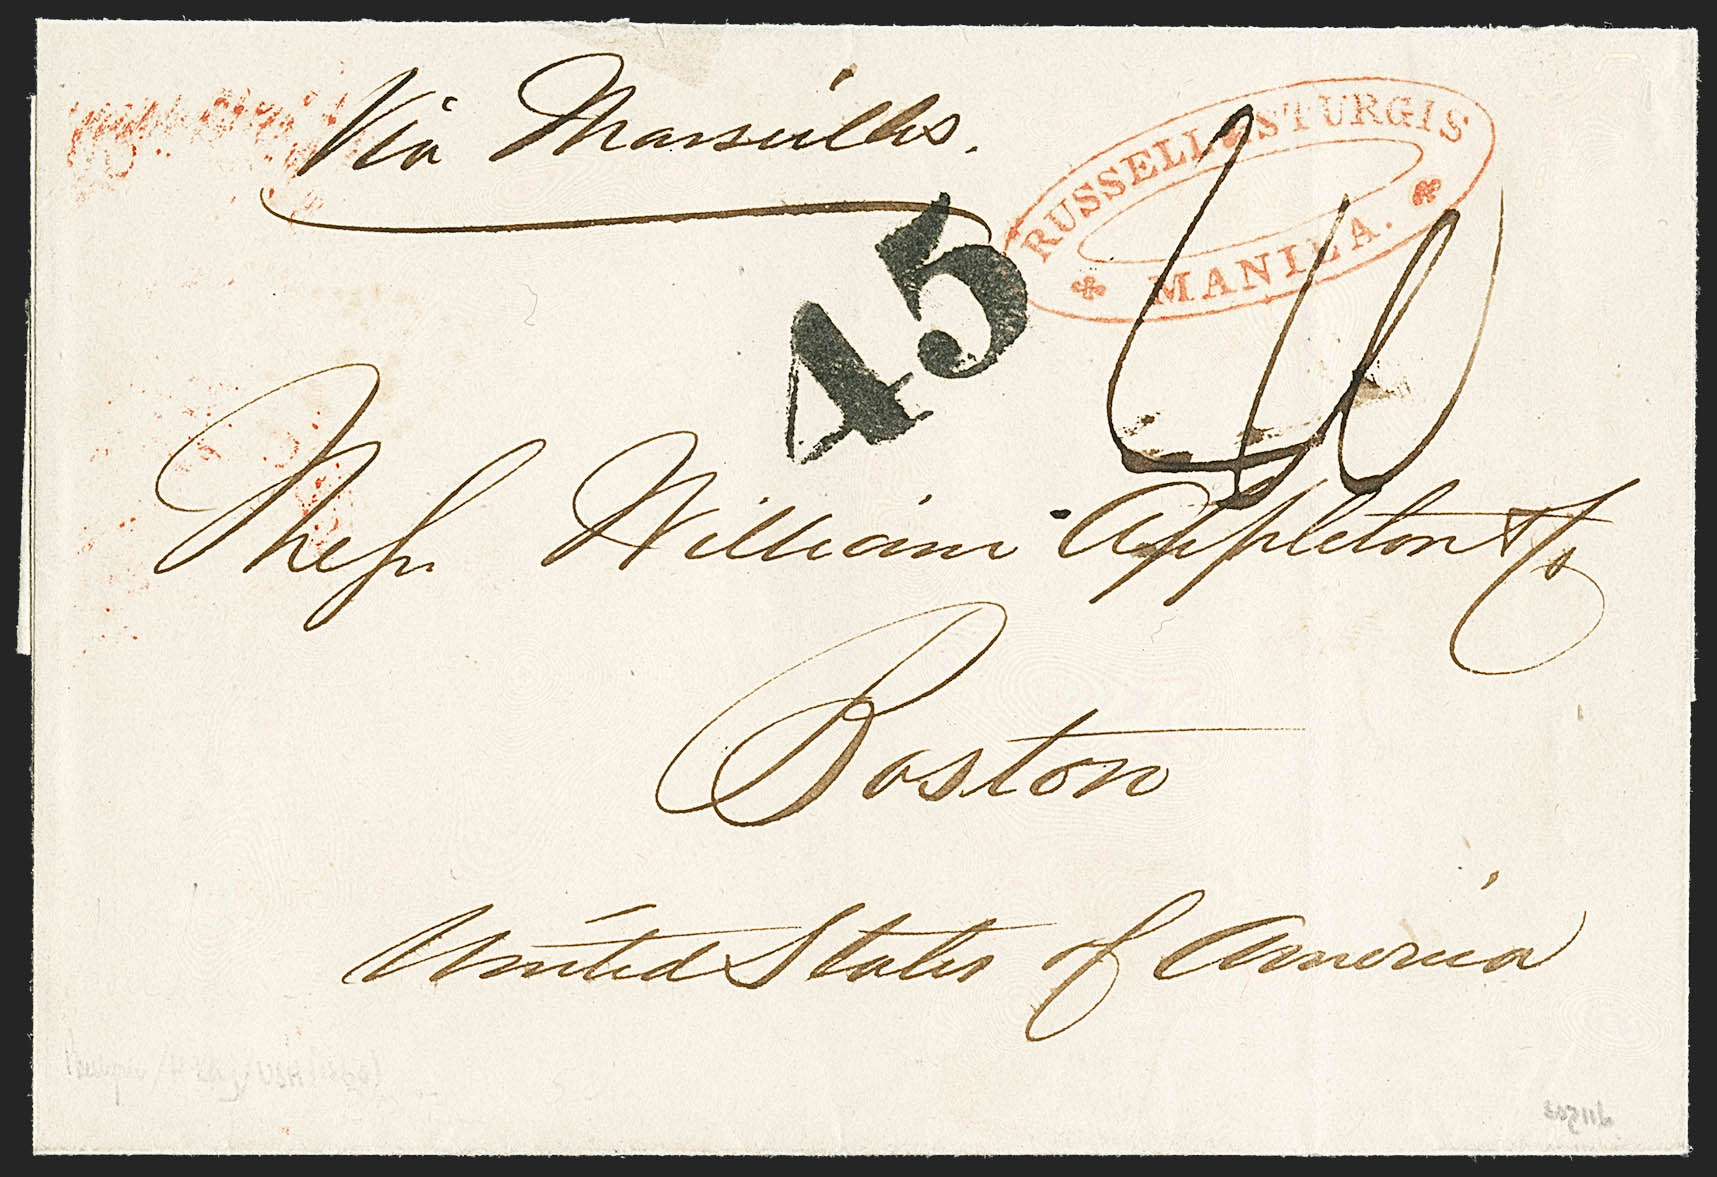 Via Marseilles.
RUSSELL & STURGIS
MANILA.
45
Messrs. William Appleton & Co
Boston
United States of America